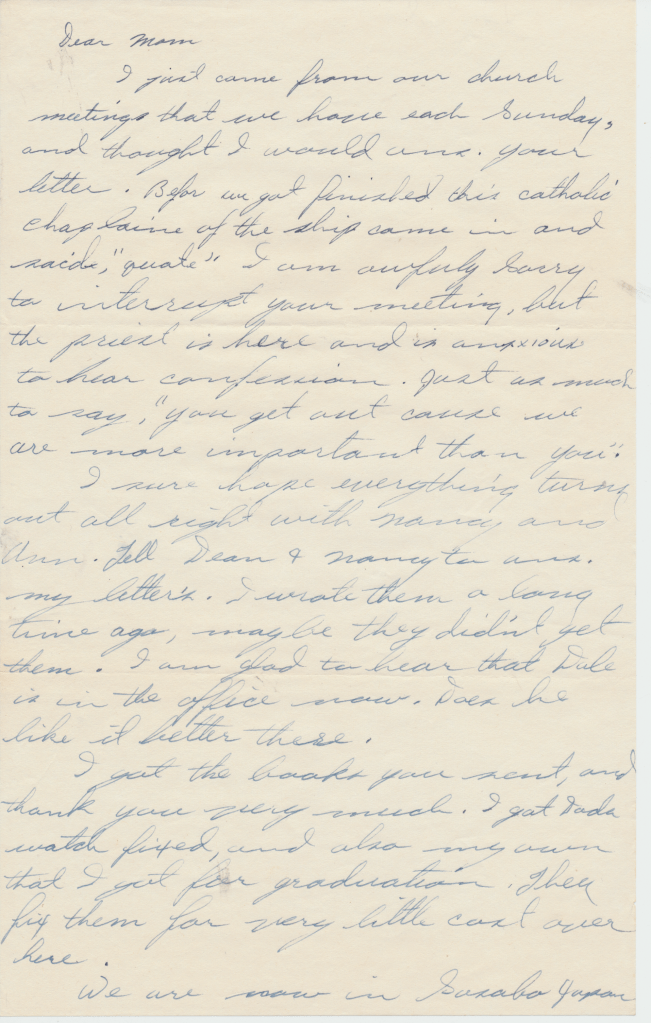 Dear Mom
I just came from our church
meetings that we have each Sunday,
and thought I would ans. your
letter. Befor we got finished this catholic
chaplaine of the ship came in and
saide, "quote" I am awfuly sorry
to interrupt your meeting, but
the priest is here and is anxious
to hear confession. Just as much
to say, "you get out cause we
are more important than you".
I sure hope everything turns
out all right with Nancy and
Ann. Tell Dean & Nancy to ans.
my letter's. I wrote them a long
time ago, maybe they didn't get
them. I am glad to hear that Dale
is in the office now. Does he
like it better there.
I got the books you sent, and
thank you very much. I got Dads
watch fixed, and also my own
that I got for graduation. They
fix them for very little cost over
here.
We are now in Sasabo Japan